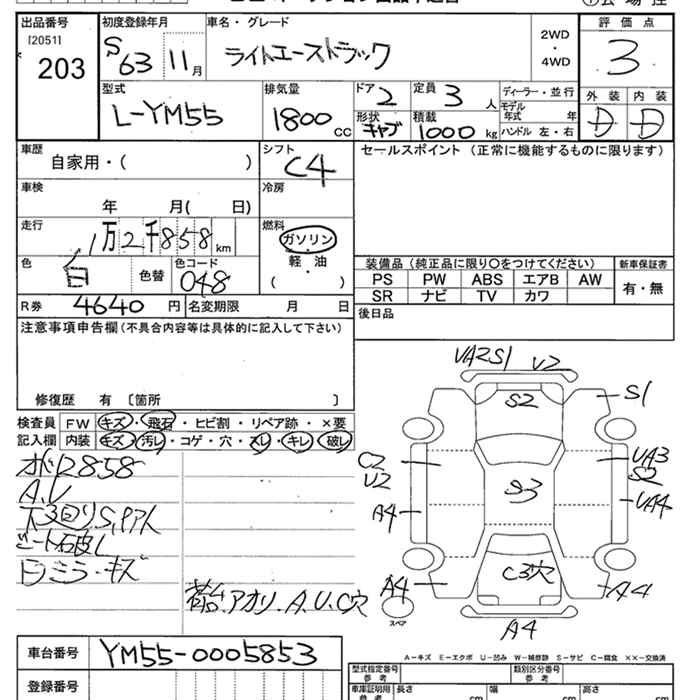 出品番号 初度登録年月 車名・グレード 評価点
[2051]
203 S63 11月 ライトエーストラック 2WD・4WD 3
型式 排気量 ドア 2 定員 3人 ディーラー・並行 外装 内装
L-YM55 1800cc 形状 キャブ 積載 1000kg モデル年式 年 D D
ハンドル 左・右
車歴 シフト セールスポイント (正常に機能するものに限ります)
自家用・( ) C4
車検 冷房
年 月( 日)
走行 燃料
1万2千858km ガソリン・軽油
( )
色 白 色替 色コード 048
装備品(純正品に限り○をつけてください) 新車保証書
PS PW ABS エアB AW 有・無
SR ナビ TV カワ
R券 4640円 名変期限 月 日 後日品
注意事項申告欄(不具合内容等は具体的に記入して下さい)
修復歴 有 [箇所 ]
検査員 FW キズ・飛石・ヒビ割・リペア跡・×要
記入欄 内装 キズ・汚レ・コゲ・穴・スレ・キレ・破レ
2858
A.U
シート破レ
ミラーキズ
荷台.アオリ.A.U.C穴
UA2S1 U2
S2 S1
C2 UA3
U2 S2
S3 UA4
A4
C3穴
A4 A4
スペア
A4
A-キズ E-エクボ U-凹み W-補修跡 S-サビ C-腐食 ××-交換済
車台番号 YM55-0005853
型式指定番号 類別区分番号
参考 参考
登録番号
車庫証明用 長さ 幅 高さ
参考 cm cm cm